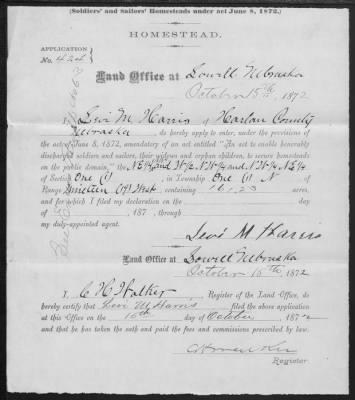 (Soldiers' and Sailors' Homesteads under act June 8, 1872.)
HOMESTEAD.
APPLICATION
No. 424
Land Office at Lowell Nebraska
October 15th, 1872
I, Levi M. Harris of Harlan County
Nebraska, do hereby apply to enter, under the provisions of the
act of June 8, 1872, amendatory of an act entitled "An act to enable honorably
discharged soldiers and sailors, their widows and orphan children, to secure homesteads
on the public domain," the
of Section One (1), in Township One (1) N of
Range Nineteen (19) West, containing 161.23 acres,
and for which I filed my declaration on the day of
, 187 , through
my duly-appointed agent.
Levi M Harris
Land Office at Lowell Nebraska
October 15th, 1872
I, C H Walker, Register of the Land Office, do
hereby certify that Levi M Harris filed the above application
at this Office on the 15th day of October, 1872
and that he has taken the oath and paid the fees and commissions prescribed by law.
Register.